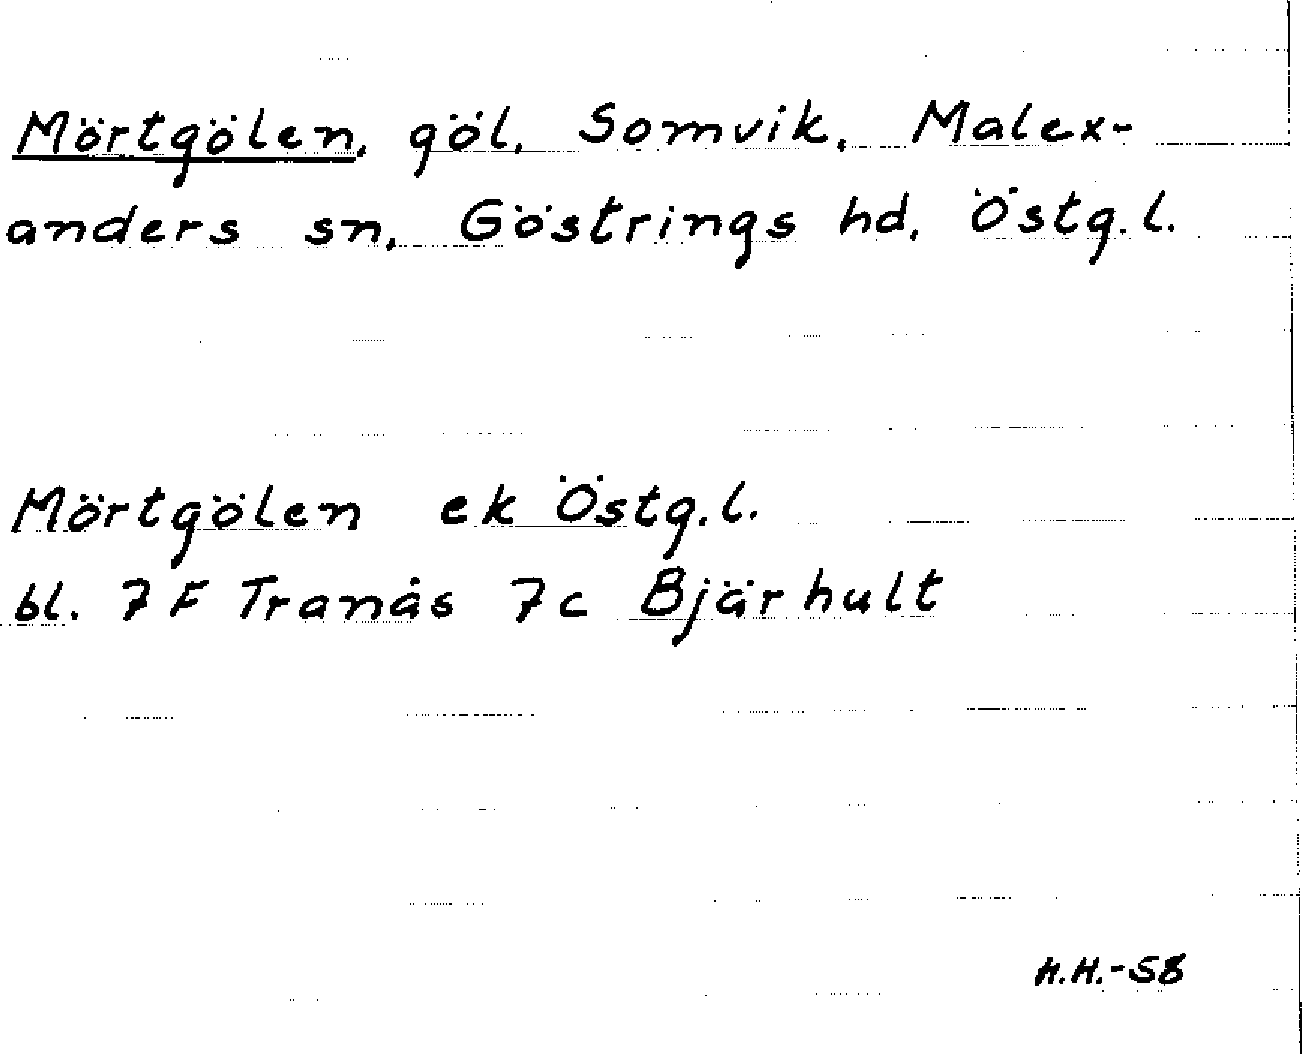 Mörtgölen, göl, Somvik, Malex-
anders sn, Göstrings hd, Östg.l.
Mörtgölen ek Östg.l.
bl. 7F Tranås 7c Bjärhult
H.H.-58